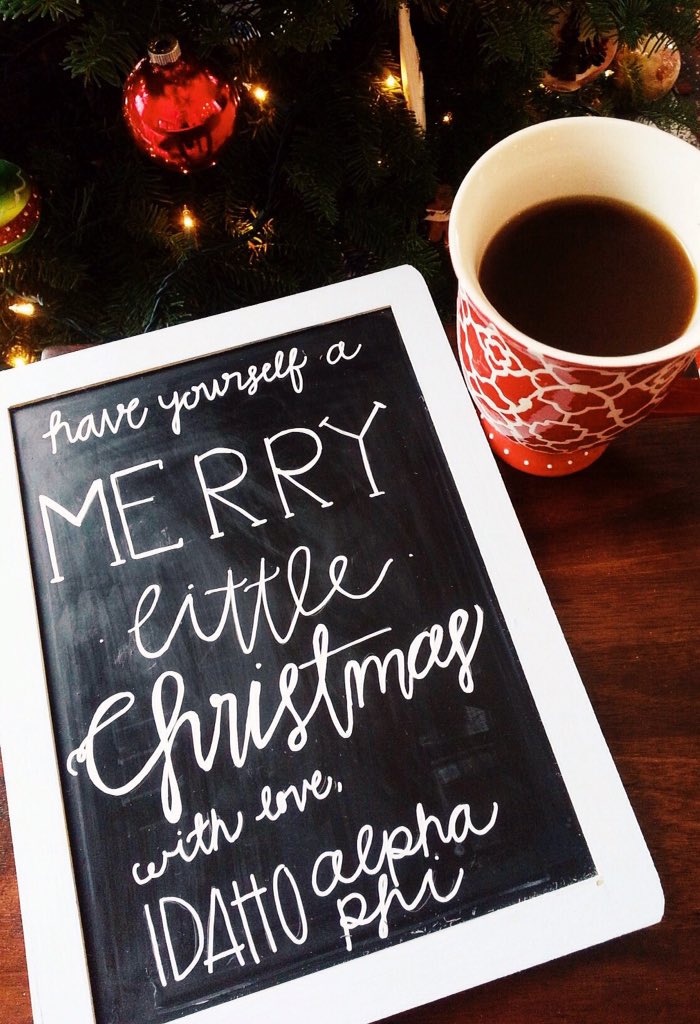 have yourself a
MERRY
little
Christmas
with love,
IDAHO alpha
phi